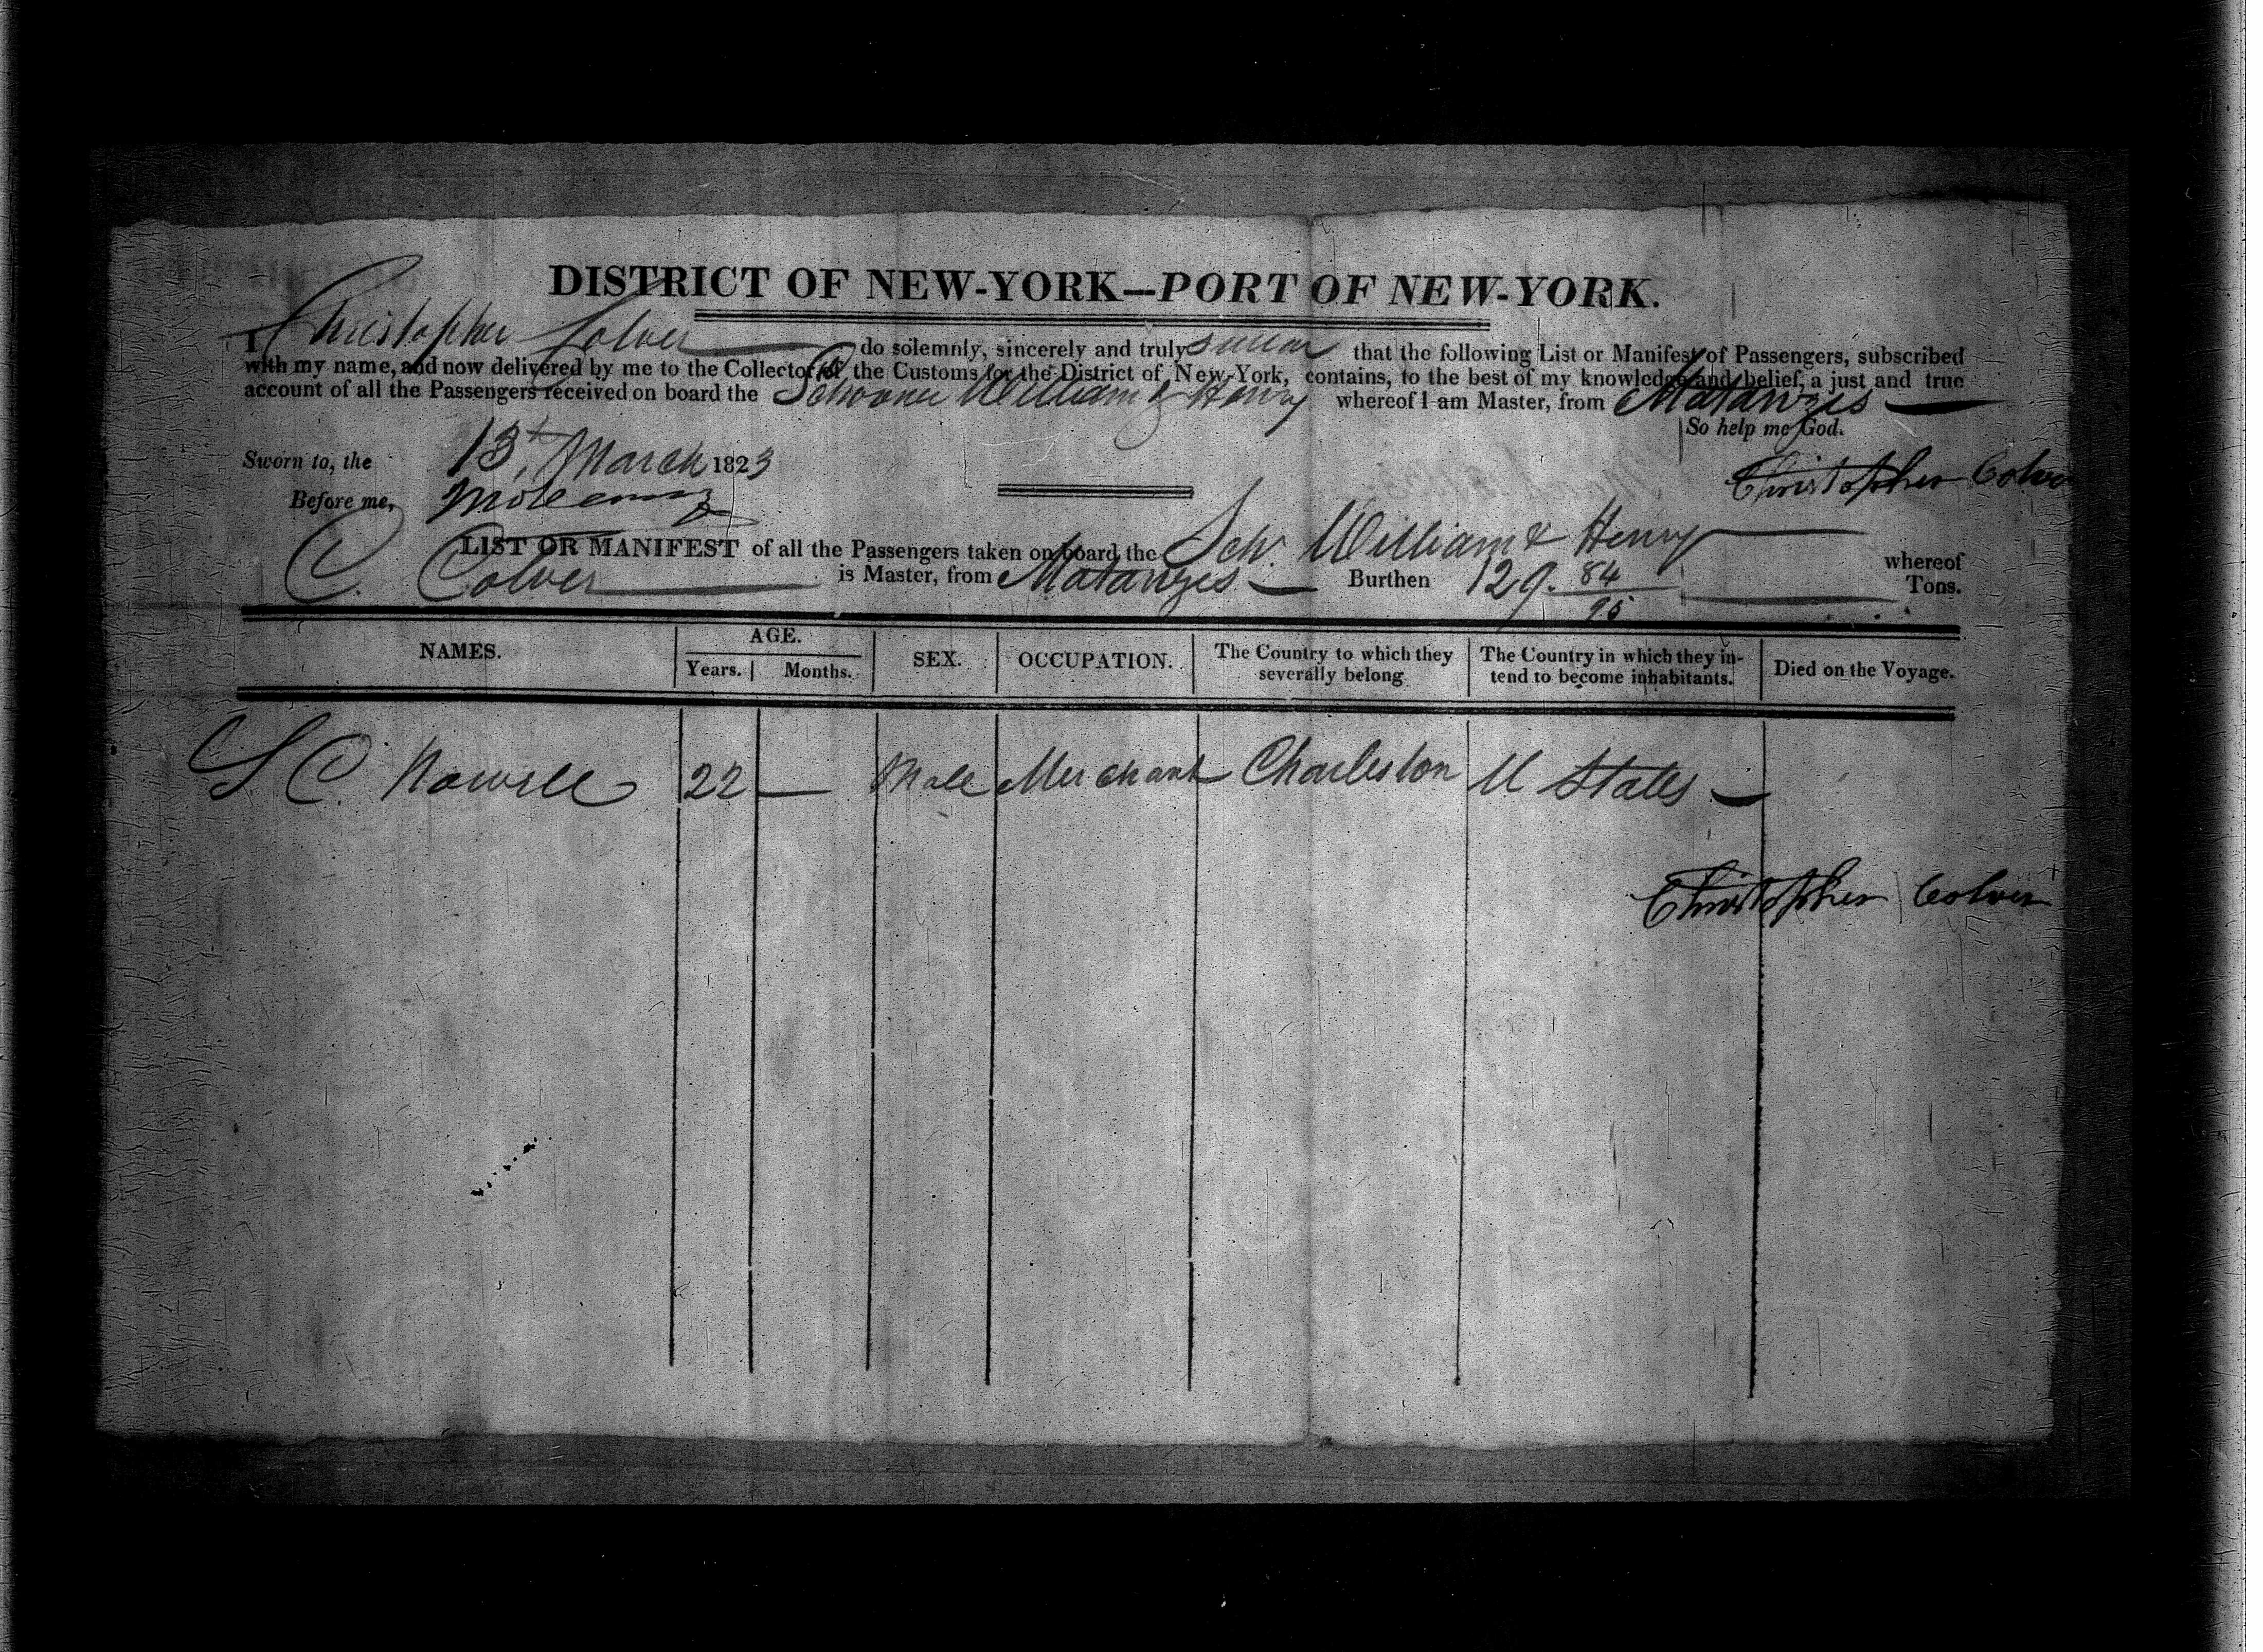 DISTRICT OF NEW-YORK—PORT OF NEW-YORK.
I Christopher Colver do solemnly, sincerely and truly swear that the following List or Manifest of Passengers, subscribed
with my name, and now delivered by me to the Collector of the Customs for the District of New-York, contains, to the best of my knowledge and belief, a just and true
account of all the Passengers received on board the Schooner William & Henry whereof I am Master, from Matanzes
So help me God.
Sworn to, the 13th March 1823
Christopher Colver
Before me,
LIST OR MANIFEST of all the Passengers taken on board the Schr. William & Henry whereof
C. Colver is Master, from Matanzes Burthen 129. 84/95 Tons.
NAMES. AGE. Years. Months. SEX. OCCUPATION. The Country to which they severally belong The Country in which they intend to become inhabitants. Died on the Voyage.
S C. Nowell 22 — Male Merchant Charleston U States —
Christopher Colver